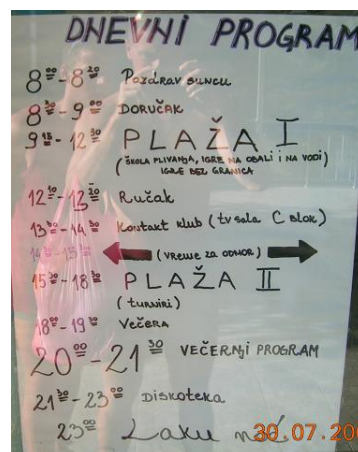 DNEVNI PROGRAM
8⁰⁰-8²⁰ Pozdrav suncu
8³⁰-9⁰⁰ DORUČAK
9¹⁵-12³⁰ PLAŽA I
(ŠKOLA PLIVANJA, IGRE NA OBALI I NA VODI
IGRE BEZ GRANICA
12 13²⁰ Ručak
13³⁰-14³⁰ Kontakt klub (tv sala C Blok)
(vreme za odmor)
15³⁰-18³⁰ PLAŽA II
(turniri)
18⁰⁰-19³⁰ Večera
20⁰⁰-21³⁰ VEČERNJI PROGRAM
21³⁰-23⁰⁰ Diskoteka
23⁰⁰ Laku noć
30.07.20